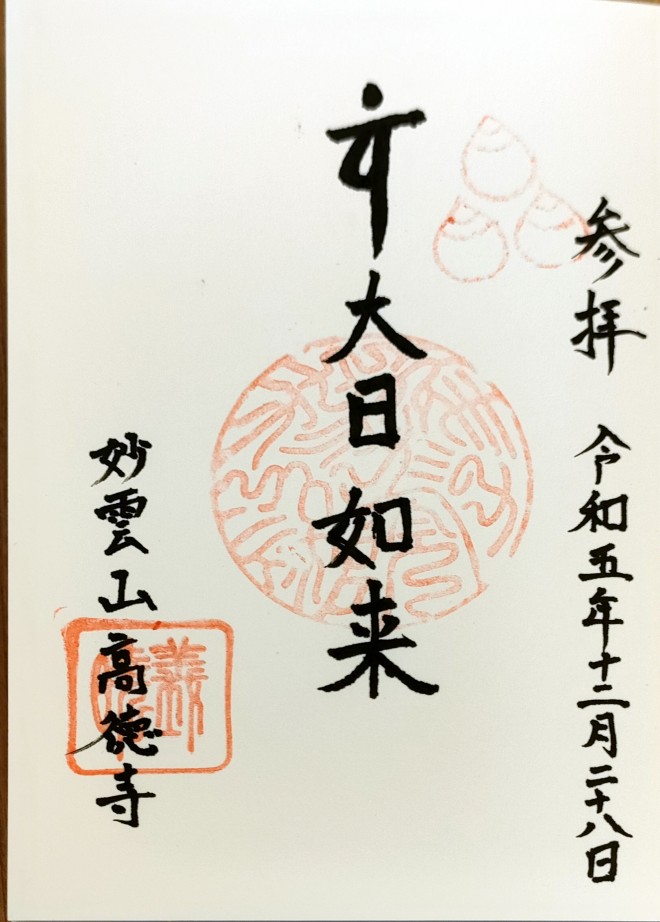 参拝 令和五年十二月二十八日
大日如来
妙雲山高徳寺